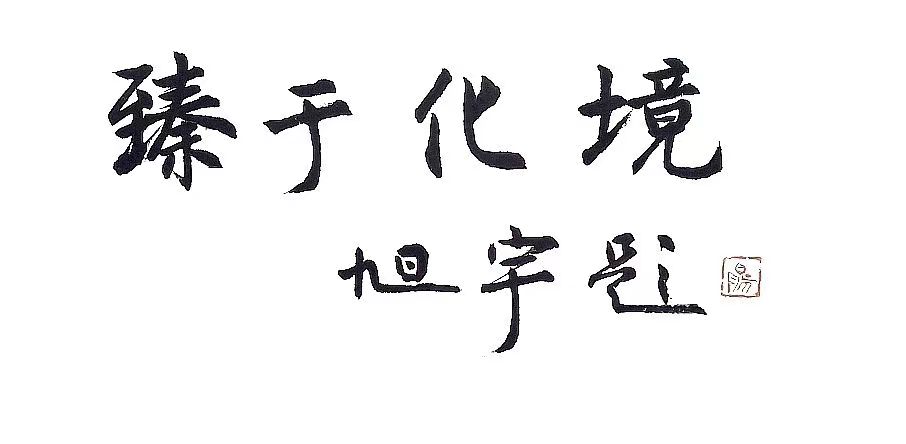 臻于化境
旭宇题